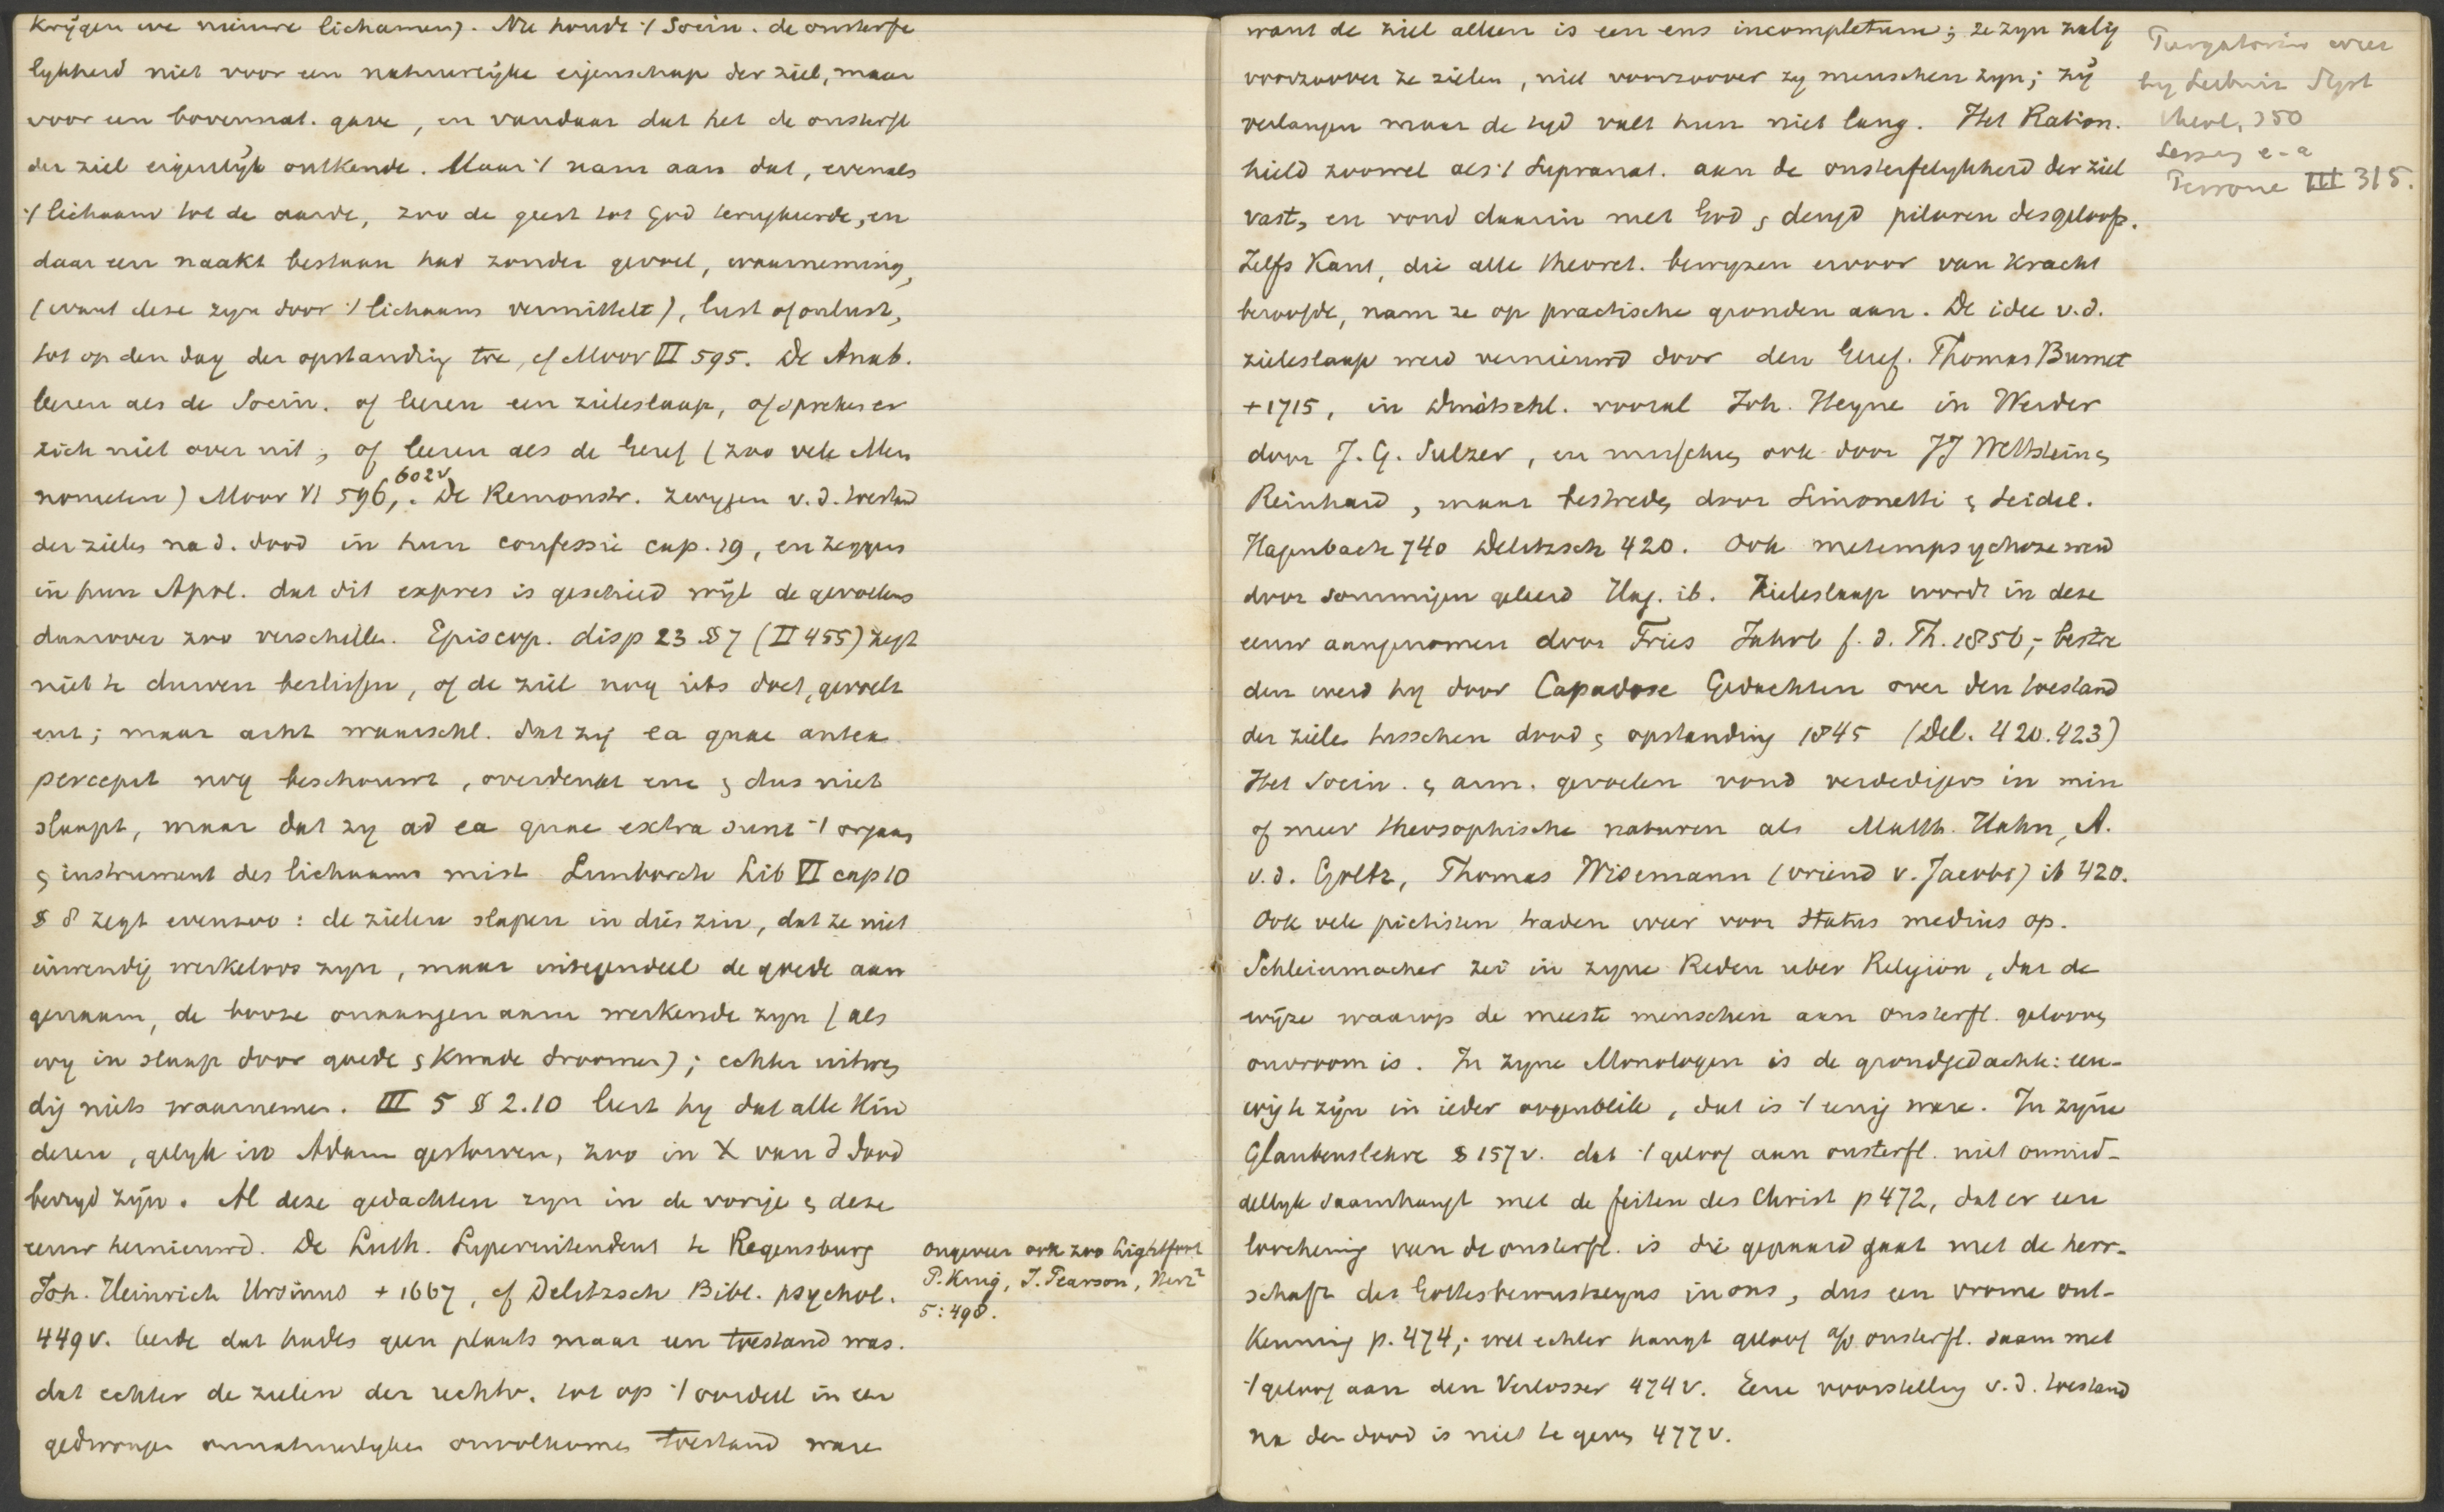 krijgen we nieuwe lichamen). Nu houdt 't Socin. de onsterfe
lykheid niet voor een natuurlijke eigenschap der ziel, maar
voor een bovennat. gave, en vandaar dat het de onsterfl
der ziel eigenlijk ontkende. Maar 't nam aan dat, evenals
't lichaam tot de aarde, zoo de geest tot God terugkeerde, en
daar een naakt bestaan had zonder gevoel, waarneming,
(want deze zyn door 't lichaam vermittelt), lust of onlust,
tot op den dag der opstanding toe, cf Moor VI 595. De Anab.
leeren als de Socin. of leeren een zieleslaap, of spreken er
zich niet over uit, of leeren als de Geref (zoo vele Men
nonieten) Moor VI 596, 602v. De Remonstr. zwygen v.d. toestand
der zielen na d. dood in hun confessie cap. 19, en zeggen
in hun Apol. dat dit expres is geschied wijl de gevoelens
daarover zoo verschillen. Episcop. disp 23 § 7 (II 455) zegt
niet te durven beslissen, of de ziel nog iets doet, gevoelt
enz; maar acht waarschl. dat zij ea quae antea
percepit nog beschouwt, overdenkt enz & dus niet
slaapt, maar dat zy ad ea quae extra sunt 't orgaan
& instrument des lichaams mist Limborch Lib VI cap 10
§ 8 zegt evenzoo: de zielen slapen in dien zin, dat ze niet
inwendig werkeloos zyn, maar integendeel de goede aan
genaam, de booze onaangenaam werkende zyn (als
wy in slaap door goede & kwade droomen); echter uitwen
dig niets waarnemen. III 5 § 2.10 leert hy dat alle kin
deren, gelyk in Adam gestorven, zoo in X van d dood
bevryd zijn. Al deze gedachten zyn in de vorige & deze
eeuw hernieuwd. De Luth. Superintendent te Regensburg
Joh. Heinrich Ursinus + 1667, cf Delitzsch Bibl. psychol.
449v. leerde dat hades geen plaats maar een toestand was.
dat echter de zielen der rechtv. tot op 't oordeel in een
gedwongen onnatuurlyken onvolkomen toestand waren
ongeveer ook zoo Lightfoot
P. King, J. Pearson, Herz²
5:498.
want de ziel alleen is een ens incompletum; ze zyn zalig
voorzoover ze zielen, niet voorzoover zy menschen zyn; zij
verlangen maar de tyd valt hun niet lang. Het Ration.
hield zoowel als 't Supranat. aan de onsterfelykheid der ziel
vast, en vond daarin met God & deugd pilaren des geloofs.
Zelfs Kant, die alle theoret. bewyzen ervoor van kracht
beroofde, nam ze op practische gronden aan. De idee v.d.
zieleslaap werd vernieuwd door den Geref. Thomas Burnet
+ 1715, in Duitschl. vooral Joh. Heyne in Werder
door J.G. Sulzer, en misschien ook door JJ Wettstein &
Reinhard, maar bestreden door Simonetti & Seidel.
Hagenbach 740 Delitzsch 420. Ook metempsychoze werd
door sommigen geleerd Hag. ib. Zieleslaap wordt in deze
eeuw aangenomen door Fries Jahrb f. d. Th. 1856; bestre
den werd hy door Capadose Gedachten over den toestand
der zielen tusschen dood & opstanding 1845 (Del. 420.423)
Het Socin. & arm. gevoelen vond verdedigers in min
of meer theosophische naturen als Matth. Hahn, A.
v. d. Goltz, Thomas Wizenmann (vriend v. Jacobi) ib 420.
Ook vele pietisten traden weer voor status medius op.
Schleiermacher zei in zyne Reden uber Religion, dat de
wijze waarop de meeste menschen aan onsterfl. gelooven
onvroom is. In zyne Monologen is de grondgedachte: eeu-
wig te zijn in ieder oogenblik, dat is 't eenig ware. In zijne
Glaubenslehre § 157v. dat 't geloof aan onsterfl. niet onmid-
dellyk saamhangt met de feiten des Christ p 472, dat er een
loochening van de onsterfl. is die gepaard gaat met de herr-
schaft des Gottesbewustseyns in ons, dus een vrome ont-
kenning p. 474; wel echter hangt geloof a/d onsterfl. saam met
't geloof aan den Verlosser 474v. Eene voorstelling v.d. toestand
na den dood is niet te geven 477v.
Purgatorium weer
by Leibniz Syst
theol. 350
Lessing e.a
Perrone III 315.